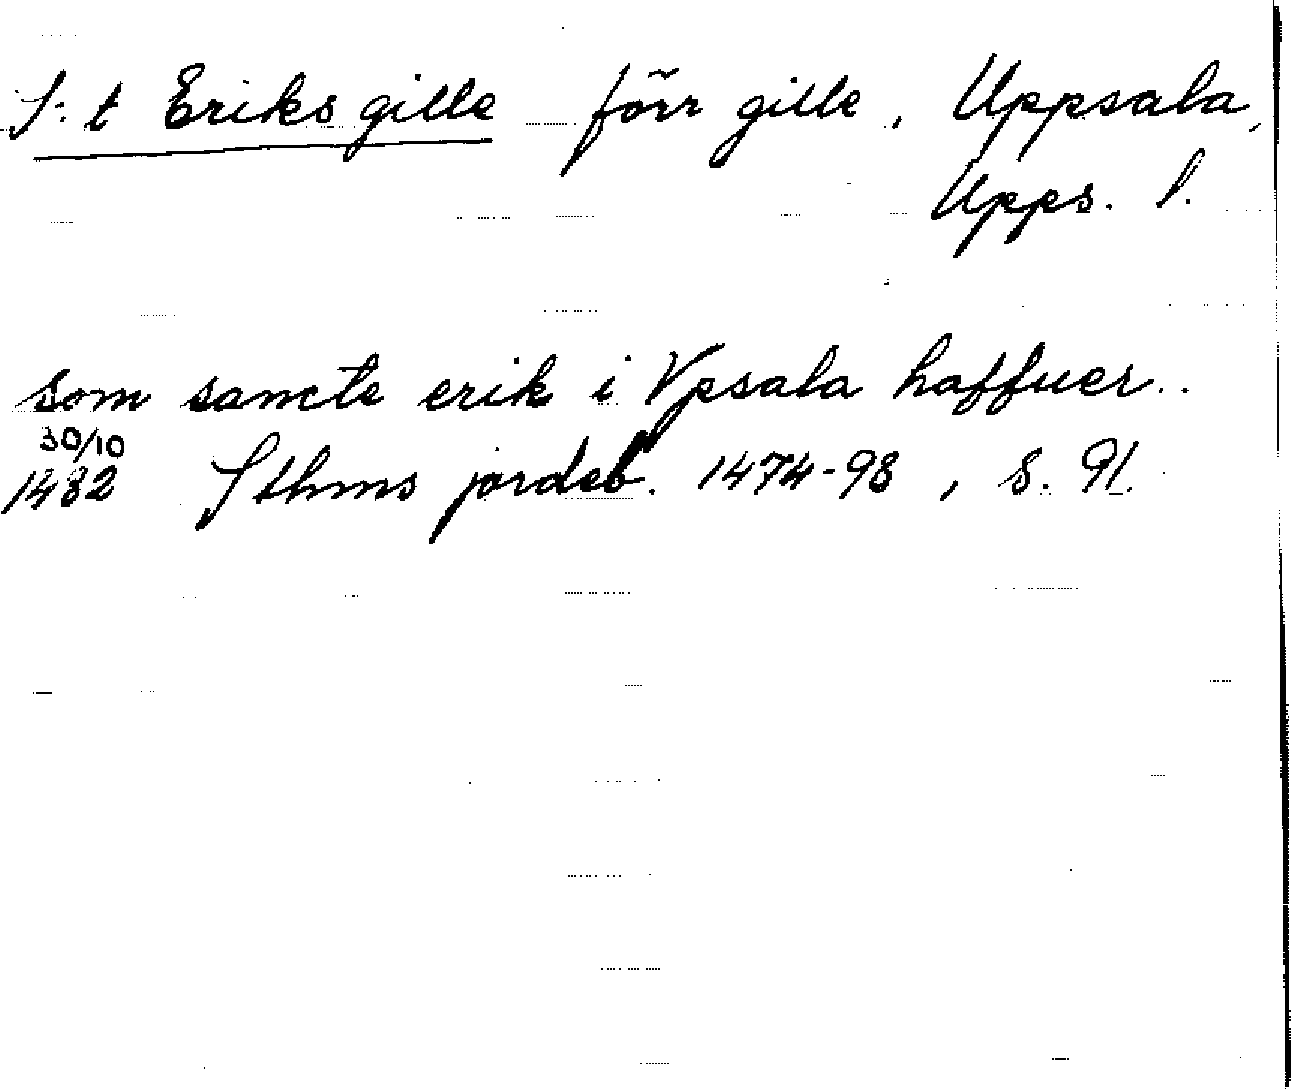 S:t Eriks gille förr gille, Uppsala,
Upps. l.
som sancte erik i Vpsala haffuer..
30/10
1482 Sthms jordeb. 1474-98, s. 91.